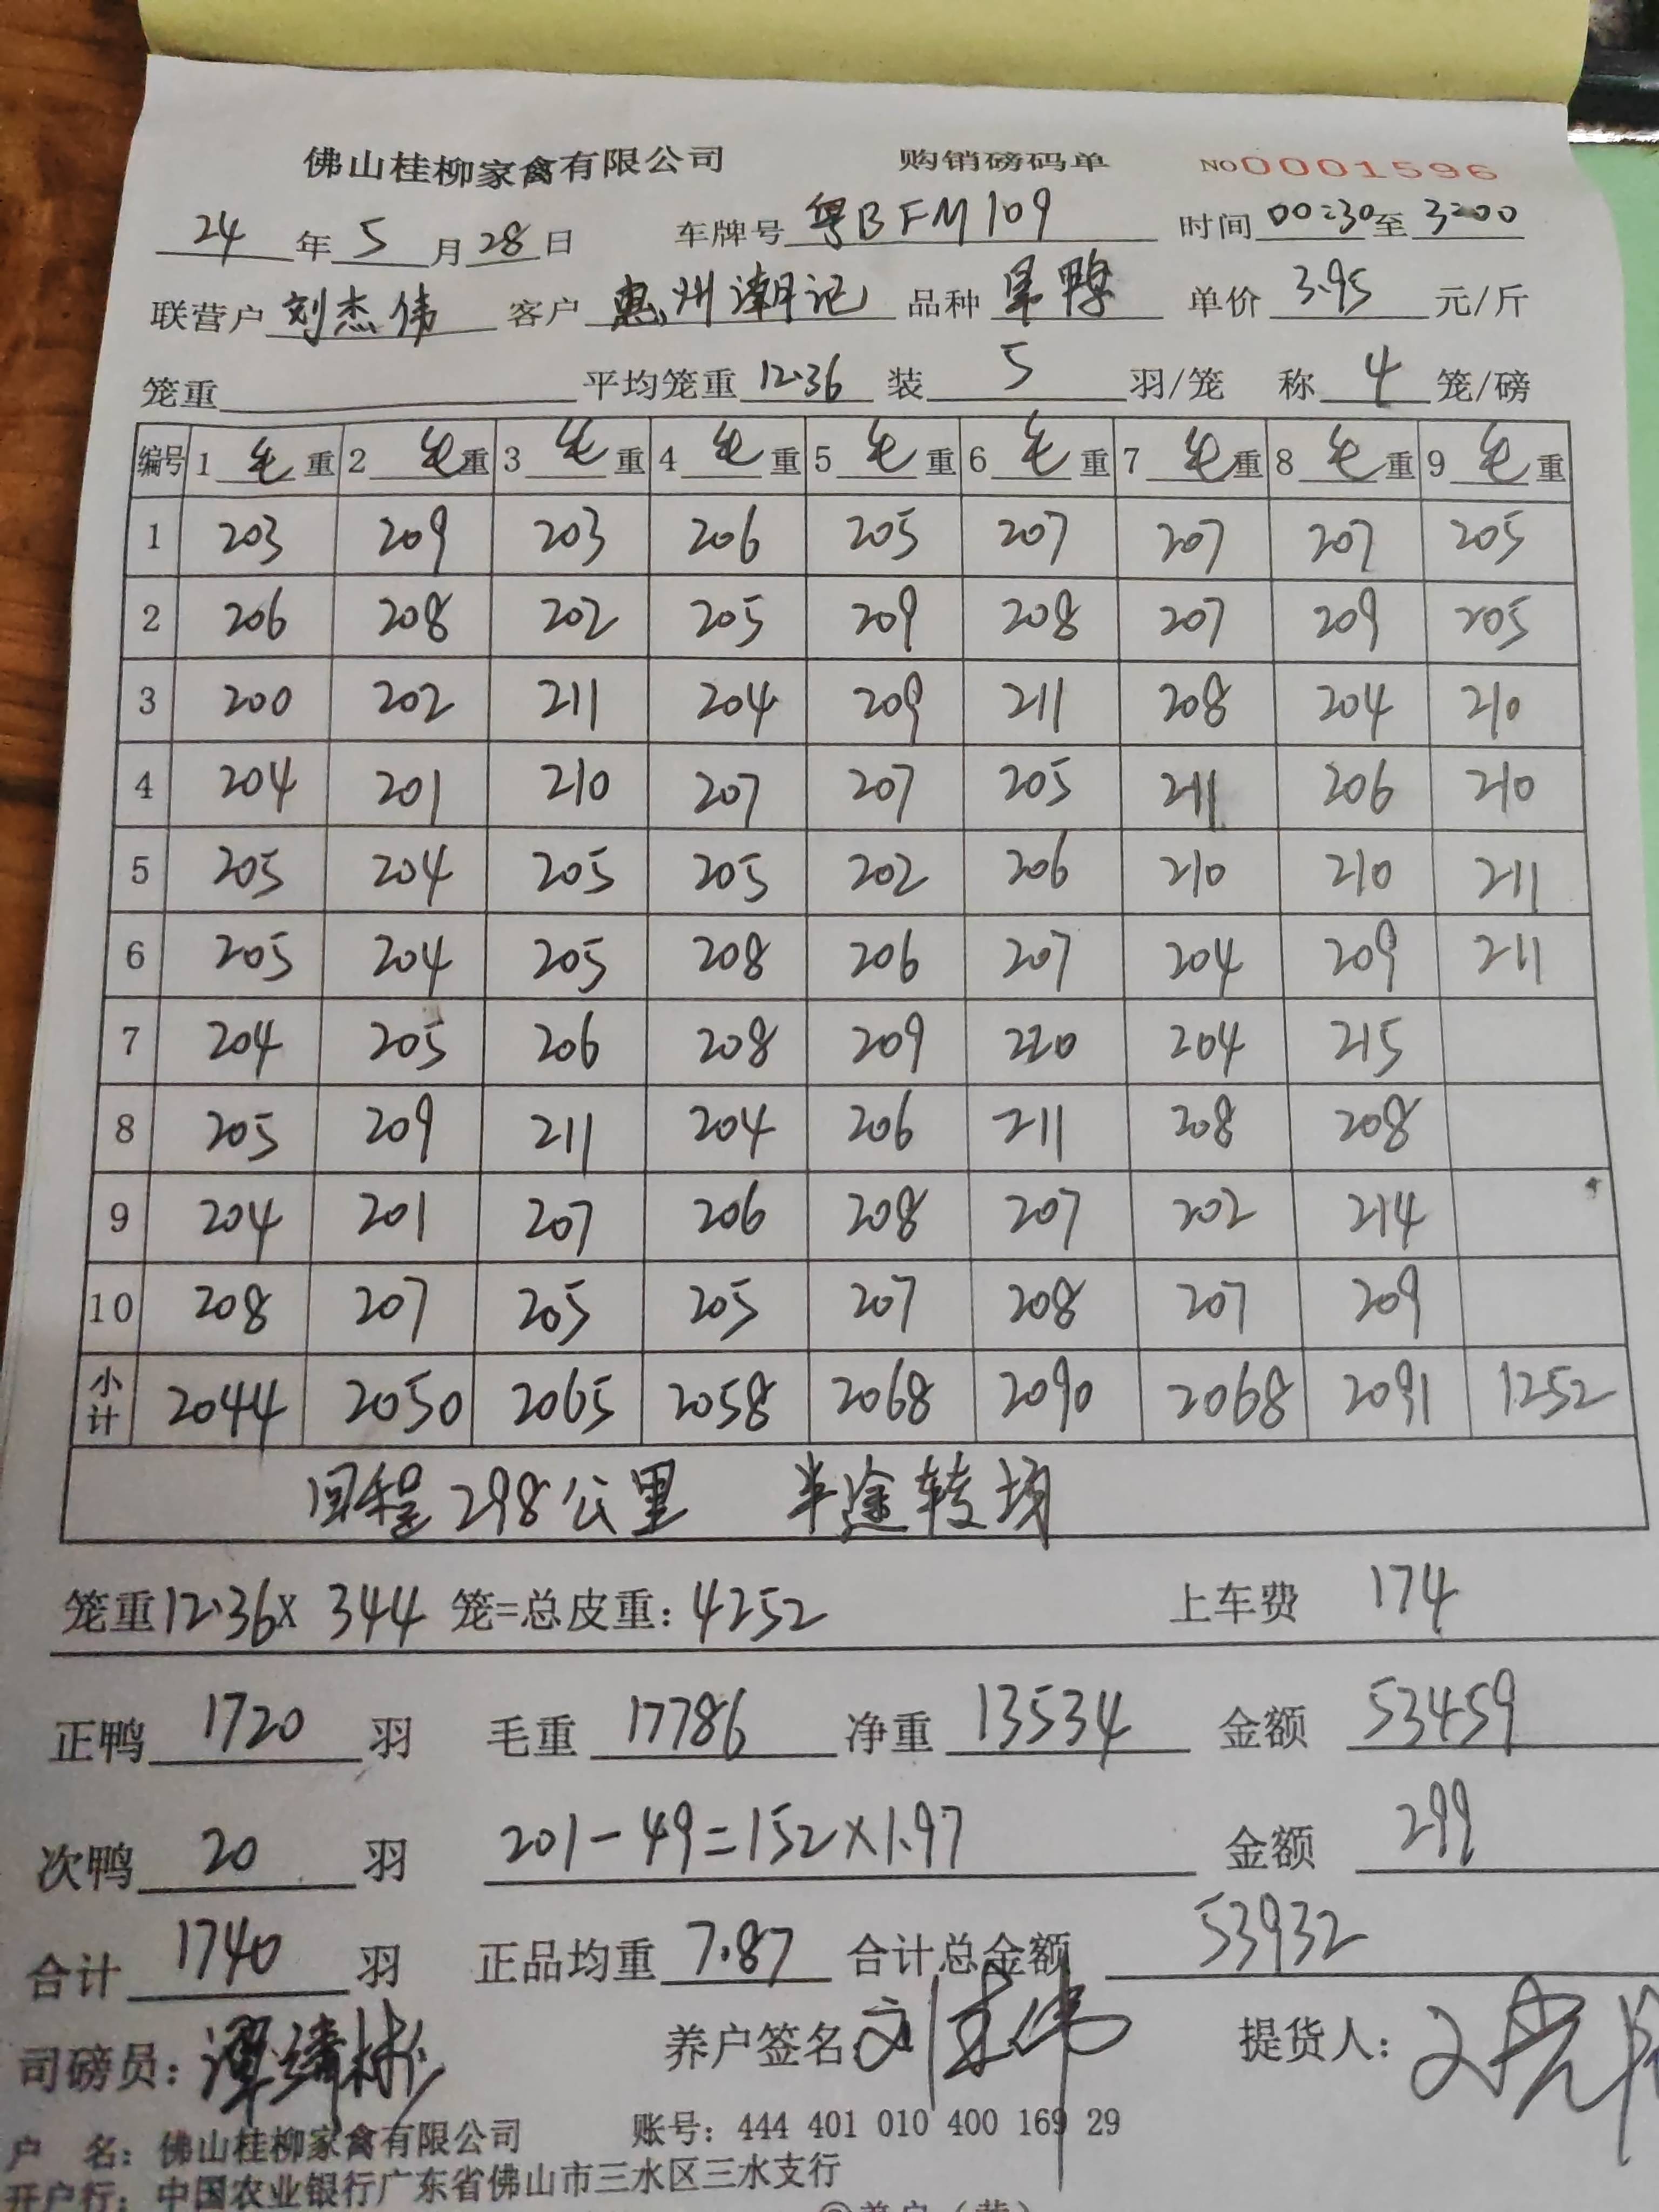 佛山桂柳家禽有限公司 购销磅码单 No0001596
24年5月28日 车牌号 粤BFM109 时间 00:30至3:00
联营户 刘杰伟 客户 惠州潮记 品种 单价 3.95 元/斤
笼重 平均笼重 12.36 装 5 羽/笼 称 4 笼/磅
编号 1 毛重 2 毛重 3 毛重 4 毛重 5 毛重 6 毛重 7 毛重 8 毛重 9 毛重
1 203 209 203 206 205 207 207 207 205
2 206 208 202 205 209 208 207 209 205
3 200 202 211 204 209 211 208 204 210
4 204 201 210 207 207 205 211 206 210
5 205 204 205 205 202 206 210 210 211
6 205 204 205 208 206 207 204 209 211
7 204 205 206 208 209 220 204 215
8 205 209 211 204 206 211 208 208
9 204 201 207 206 208 207 202 214
10 208 207 205 205 207 208 207 209
小计 2044 2050 2065 2058 2068 2090 2068 2091 1252
回程298公里 半途转场
笼重12.36X 344 笼=总皮重: 4252 上车费 174
正鸭 1720 羽 毛重 17786 净重 13534 金额 53459
次鸭 20 羽 201-49=152×1.97 金额 299
合计 1740 羽 正品均重 7.87 合计总金额 53932
司磅员: 养户签名 刘杰伟 提货人:
户 名: 佛山桂柳家禽有限公司 账号: 444 401 010 400 169 29
开户行: 中国农业银行广东省佛山市三水区三水支行